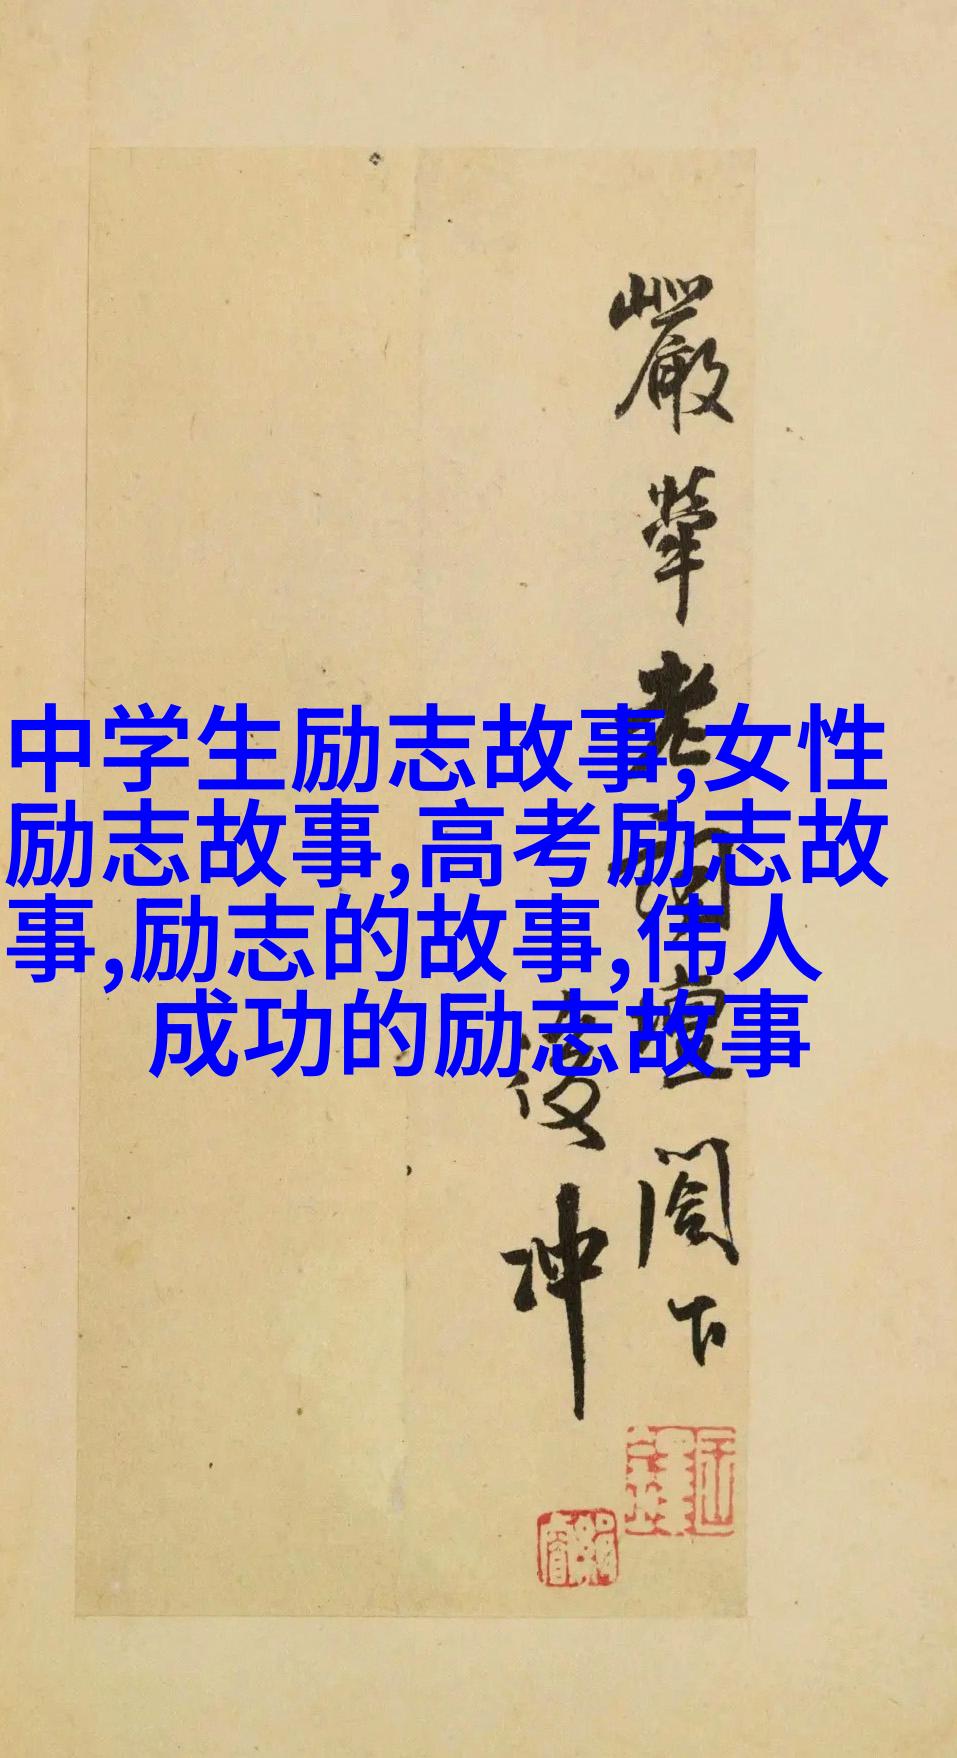 中学生励志故事,女性
励志故事,高考励志故
事,励志的故事,伟人
成功的励志故事
嚴犖老詞壇閣下
凌冲